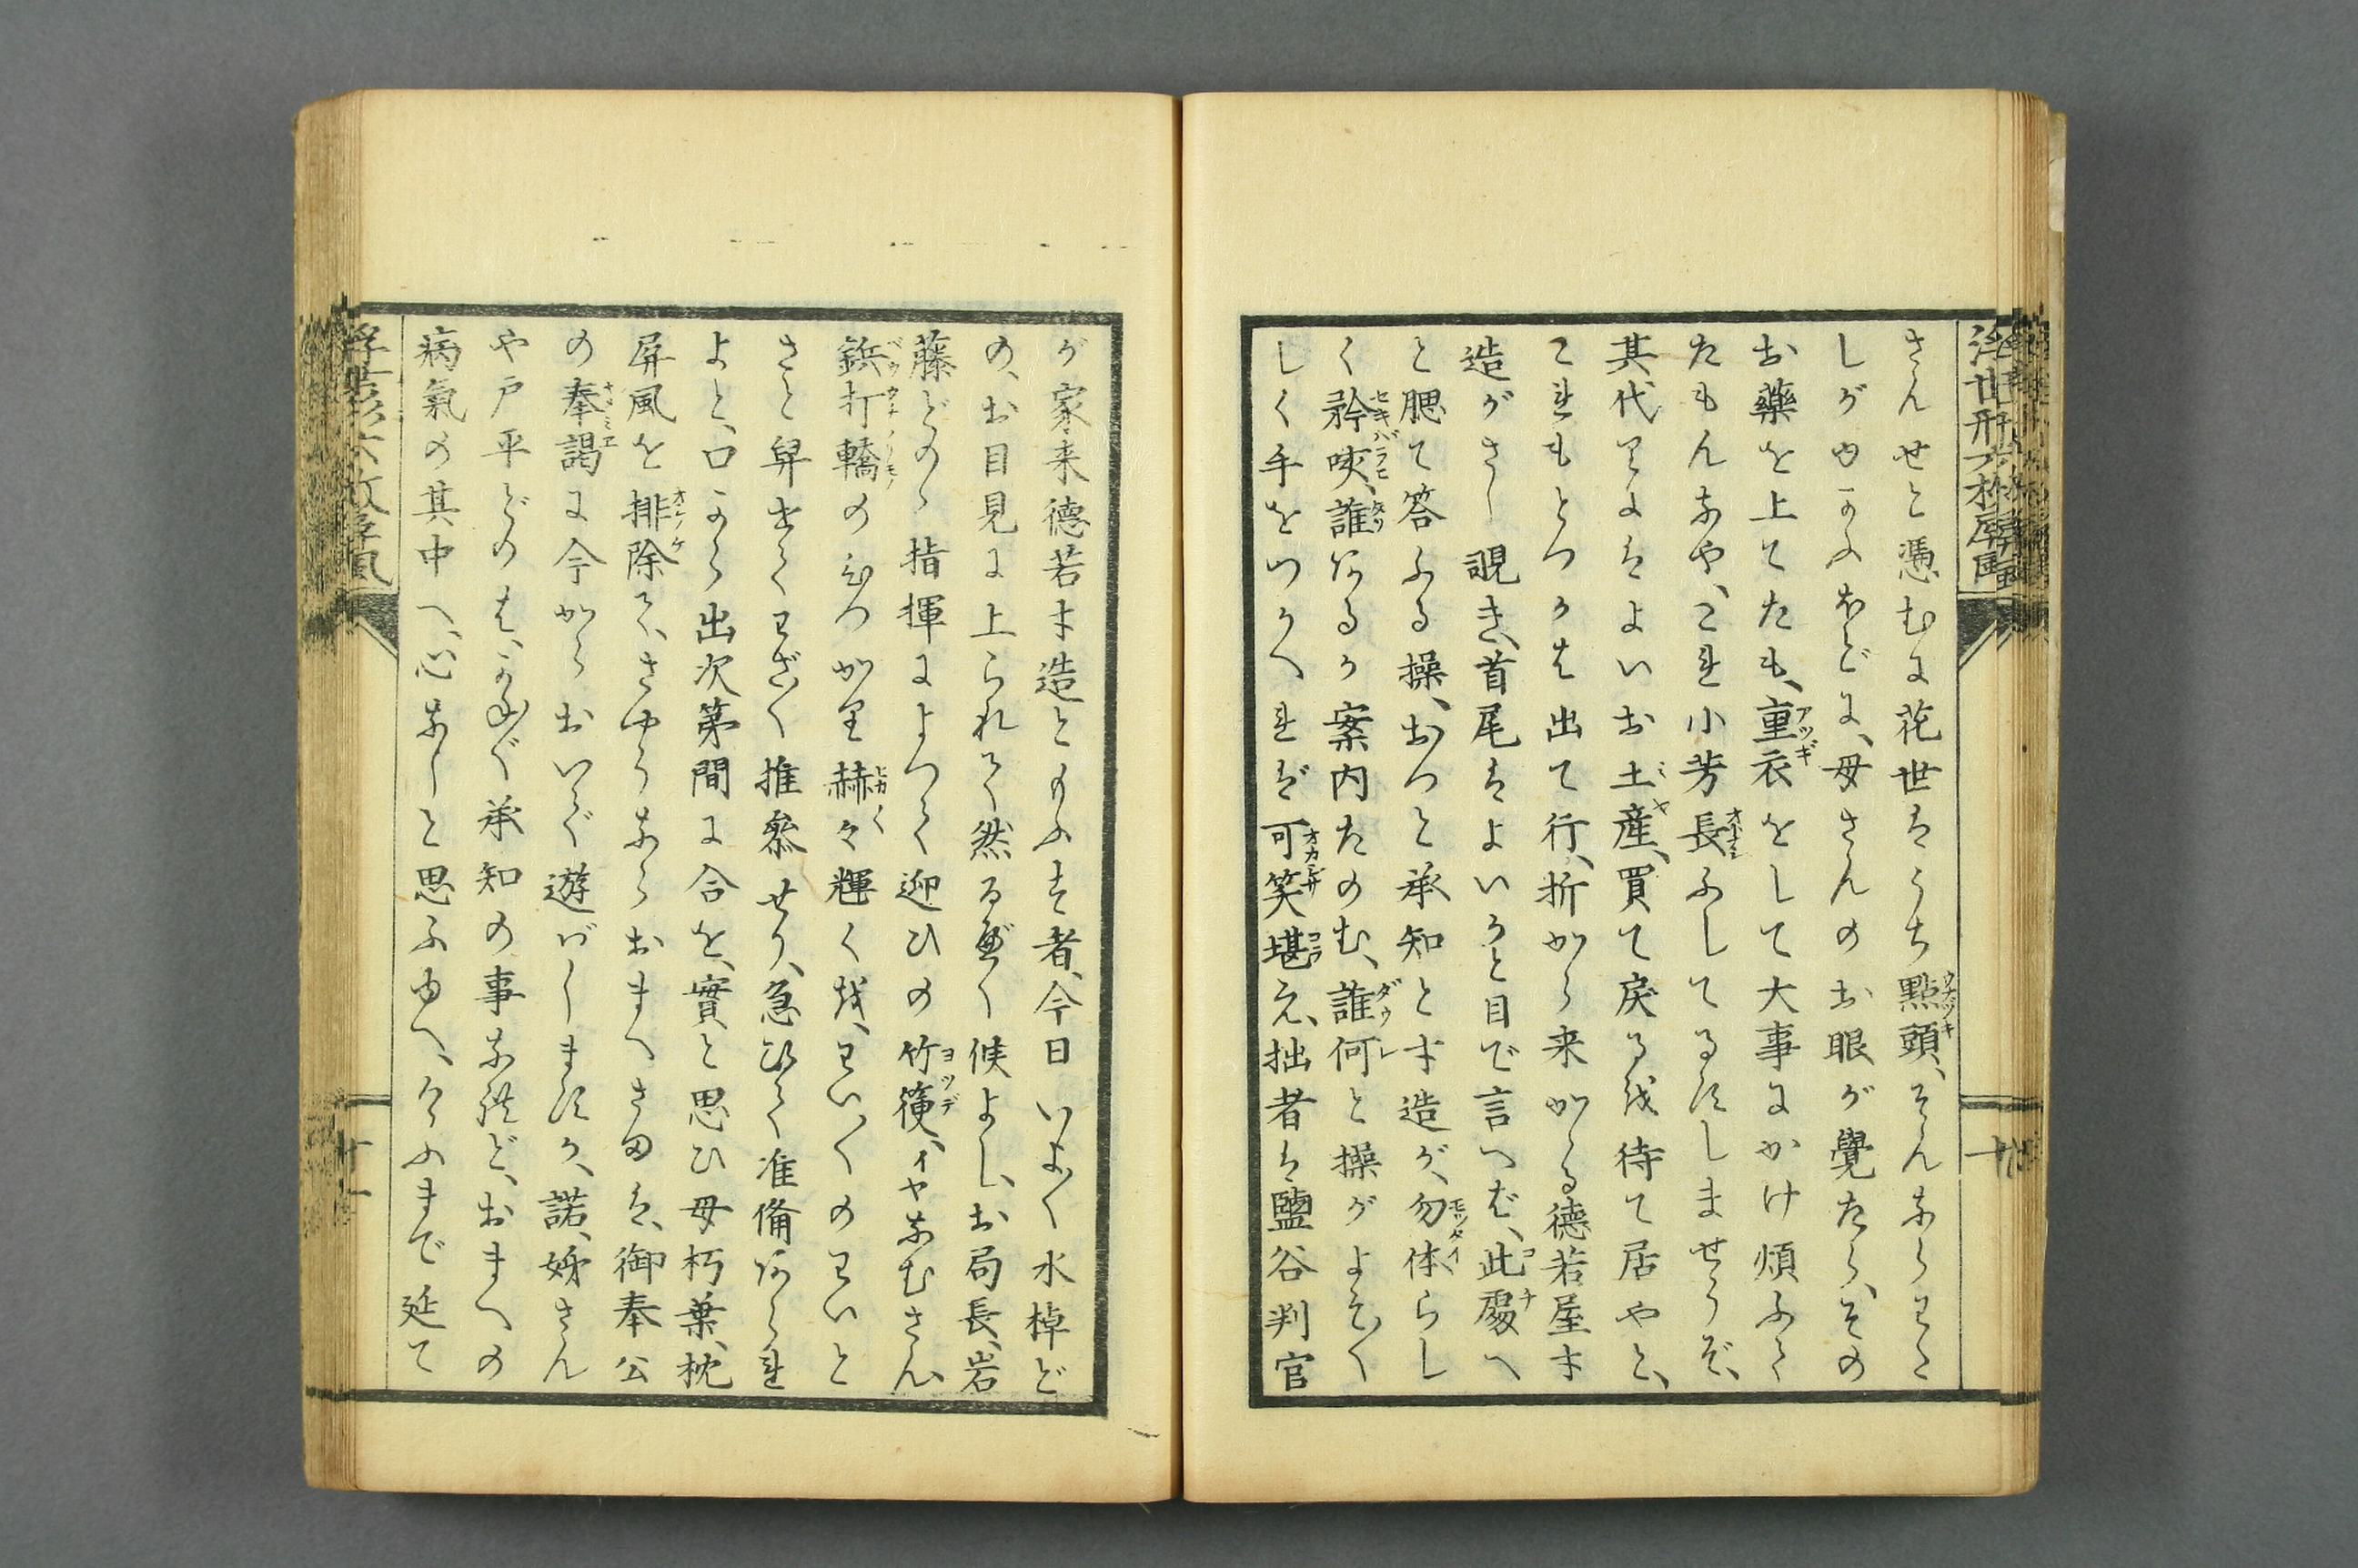 さんせと憑むに花世はうち點頭、そんならわた
しがゆかふほどに、母さんのお眼が覺たら、その
お藥を上てたも、重衣をして大事にかけ煩ふて
たもんなや、これ小芳長ふしてゐませうぞ、
其代りにはよいお土産、買て戻るを待て居やと、
これもとつかは出て行、折から来かゝる德若屋才
造がさし覗き、首尾はよいかと目で言へば、此處へ
と腮て答ふる操、おつと承知と才造が、勿体らし
く矜咲、誰ぞあるか案内たのむ、誰何と操がよそ〳〵
しく手をつかへれば可笑堪え、拙者は鹽谷判官
が家来德若才造とまふす者、今日いよ〳〵水棹ど
の、お目見に上られて然るべく候よし、お局長、岩
藤どのゝ指揮によつて迎ひの竹篗、イヤなむさん、
鋲打轎のひつかり赫々輝くを、わい〳〵のわいと
さと舁せてわざ〳〵推參せり、急ひで准備あられ
よと、口から出次第間に合を、實と思ひ母朽葉、枕
屏風を排除て、さやうならおまへさまは、御奉公
の奉謁に今からおいで遊ばしますか、諾、姊さん
や戸平どのは、かねて承知の事なれど、おまへの
病氣の其中へ、心なしと思ふゆへ、けふまで延て
浮世形六枚屏風
十一